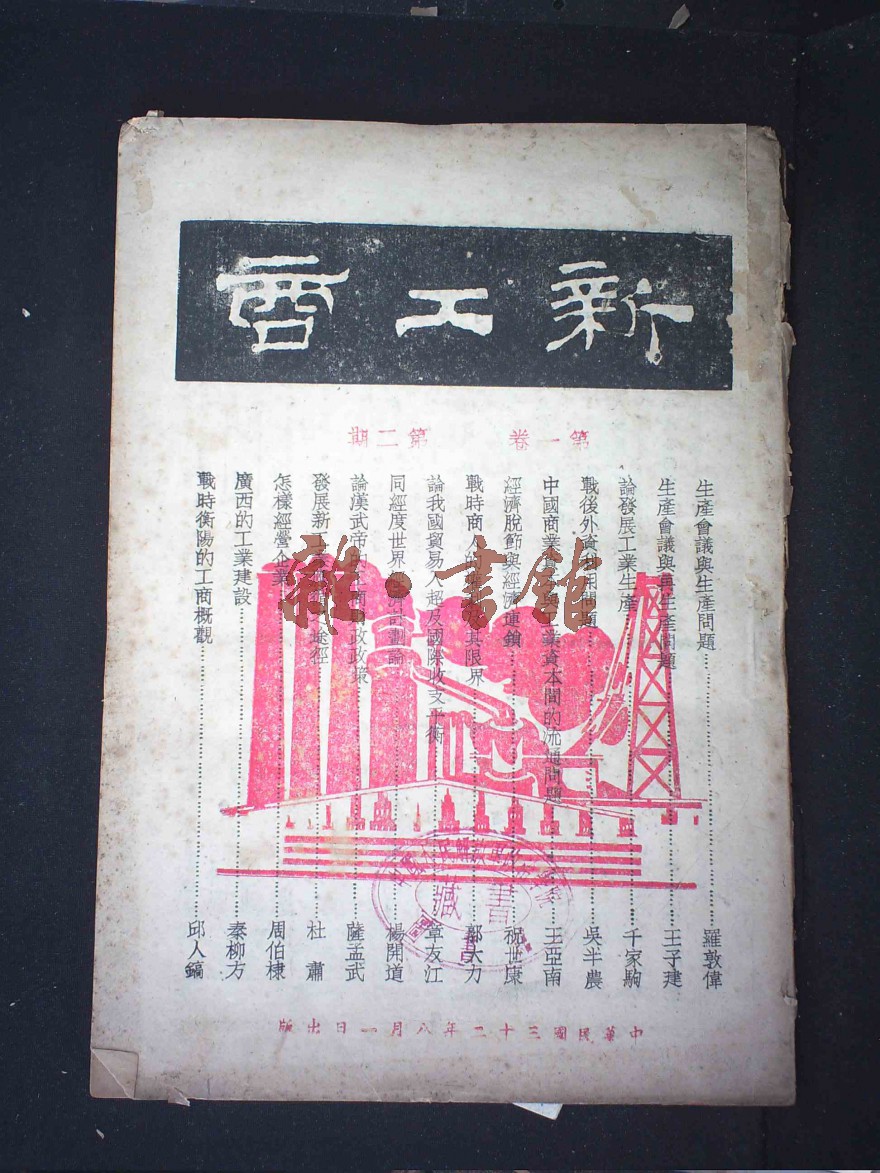 新工商
第一卷 第二期
生產會議與生產問題 羅敦偉
生產會議與再生產問題 王子建
論發展工業生產 千家駒
戰後外資利用問題 吳半農
中國商業資本與工業資本間的流通問題 王亞南
經濟脫節與經濟連鎖 祝世康
戰時商人的 其限界 郭大力
論我國貿易入超及國際收支平衡 章友江
同經度世界經濟計劃論 楊開道
論漢武帝的 政政策 薩孟武
發展新工業 途徑 杜肅
怎樣經營企業 周伯棣
廣西的工業建設 秦柳方
戰時衡陽的工商概觀 邱人鎬
中華民國三十二年八月一日出版
雜·書館
藏書